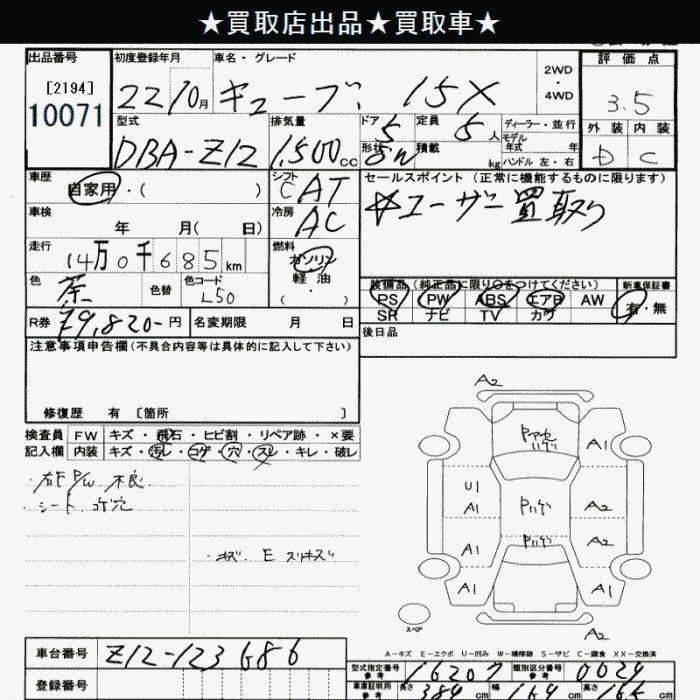 ★買取店出品★買取車★
出品番号 初度登録年月 車名・グレード 評価点
[2194] 22 10月 キューブ 15X 2WD・4WD 3.5
10071
型式 排気量 ドア 定員 ディーラー・並行 外装 内装
DBA-Z12 1,500cc 5 5人 モデル年式 年 D C
形状 5W 積載 kg ハンドル 左・右
車歴 シフト セールスポイント(正常に機能するものに限ります)
自家用・( ) CAT ☆ユーザー買取り
車検 冷房
年 月( 日) AC
走行 燃料
14万0千685km ガソリン
軽油
( ・ )
色 色替 色コード 装備品(純正品に限り○をつけてください) 新車保証書
茶 L50 PS PW ABS エアB AW 有・無
SR ナビ TV カワ
R券 79,820-円 名変期限 月 日 後日品
注意事項申告欄(不具合内容等は具体的に記入して下さい)
修復歴 有 [箇所 ]
検査員 FW キズ・飛石・ヒビ割・リペア跡・×要
記入欄 内装 キズ・汚レ・コゲ・穴・スレ・キレ・破レ
・右F P/W 不良
・シート コゲ穴
・キズ. E スリキズ
A2
A1
U1
A1 Pハゲ A2
Pハゲ
A1 A2
A1 A1
スペア
A2
A-キズ E-エクボ U-凹み W-補修跡 S-サビ C-腐食 XX-交換済
車台番号 Z12-123686
型式指定番号 参考 16207 類別区分番号 参考 0024
登録番号
車庫証明用 参考 長さ 389cm 幅 169cm 高さ 165cm